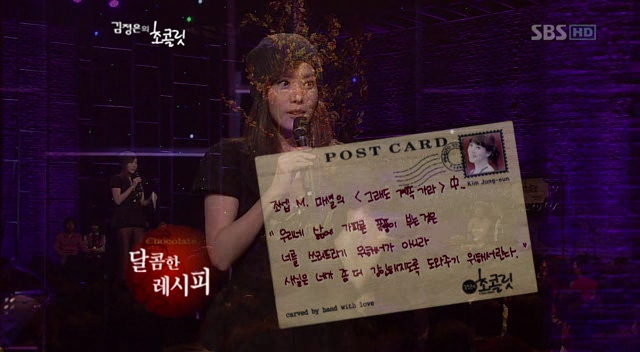 김정은의 초콜릿
SBS HD
POST CARD
Kim Jung-eun
조셉 M. 마셜의 <그래도 계속 가라> 中..
"우리네 삶에 폭풍이 부는 것은
너를 쓰러트리기 위해서가 아니라
사실은 네가 좀 더 강인해지도록 도와주기 위해서란다."
초콜릿
carved by hand with love
Chocolate
달콤한
레시피